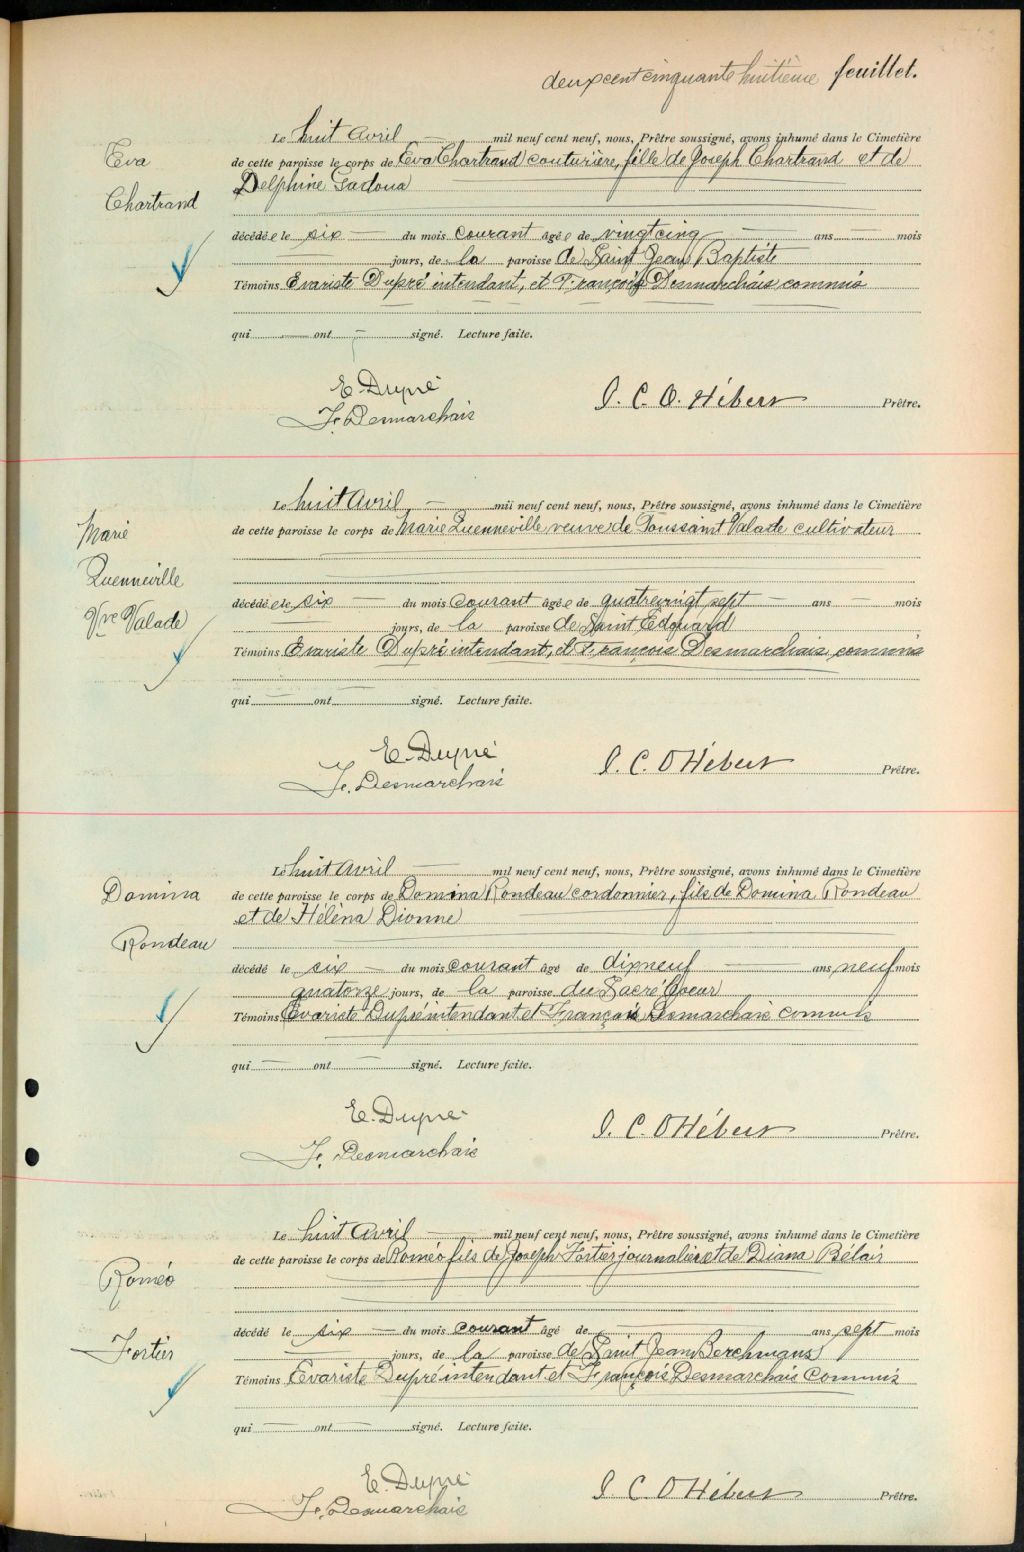 deux cent cinquante huitième feuillet.
Eva
Chartrand
Le huit Avril — mil neuf cent neuf, nous, Prêtre soussigné, avons inhumé dans le Cimetière
de cette paroisse le corps de Eva Chartrand couturière, fille de Joseph Chartrand et de
Delphine Gadoua
décédée le six — du mois courant âgée de vingt cinq — ans — mois
— jours, de la paroisse de Saint Jean Baptiste
Témoins Evariste Dupré intendant, et François Desmarchais commis
qui — ont — signé. Lecture faite.
E. Dupré
F. Desmarchais
J. C. O. Hébert Prêtre.
Marie
Quenneville
Vve Valade
Le huit Avril — mil neuf cent neuf, nous, Prêtre soussigné, avons inhumé dans le Cimetière
de cette paroisse le corps de Marie Quenneville veuve de Toussaint Valade cultivateur
décédée le six — du mois courant âgée de quatrevingt sept — ans — mois
— jours, de la paroisse de Saint Edouard
Témoins Evariste Dupré intendant, et François Desmarchais commis
qui — ont — signé. Lecture faite.
E. Dupré
F. Desmarchais
J. C. O Hébert Prêtre.
Domina
Rondeau
Le huit Avril — mil neuf cent neuf, nous, Prêtre soussigné, avons inhumé dans le Cimetière
de cette paroisse le corps de Domina Rondeau cordonnier, fils de Domina Rondeau
et de Héléna Dionne
décédé le six — du mois courant âgé de dixneuf — ans neuf mois
quatorze jours, de la paroisse du Sacré Coeur
Témoins Evariste Dupré intendant et François Desmarchais commis
qui — ont — signé. Lecture faite.
E. Dupré
F. Desmarchais
J. C. O Hébert Prêtre.
Roméo
Fortier
Le huit Avril — mil neuf cent neuf, nous, Prêtre soussigné, avons inhumé dans le Cimetière
de cette paroisse le corps de Roméo fils de Joseph Fortier journalier et de Diana Bélair
décédé le six — du mois courant âgé de — ans sept mois
— jours, de la paroisse de Saint Jean Berchmans
Témoins Evariste Dupré intendant et François Desmarchais Commis
qui — ont — signé. Lecture faite.
E. Dupré
F. Desmarchais
J. C. O Hébert Prêtre.